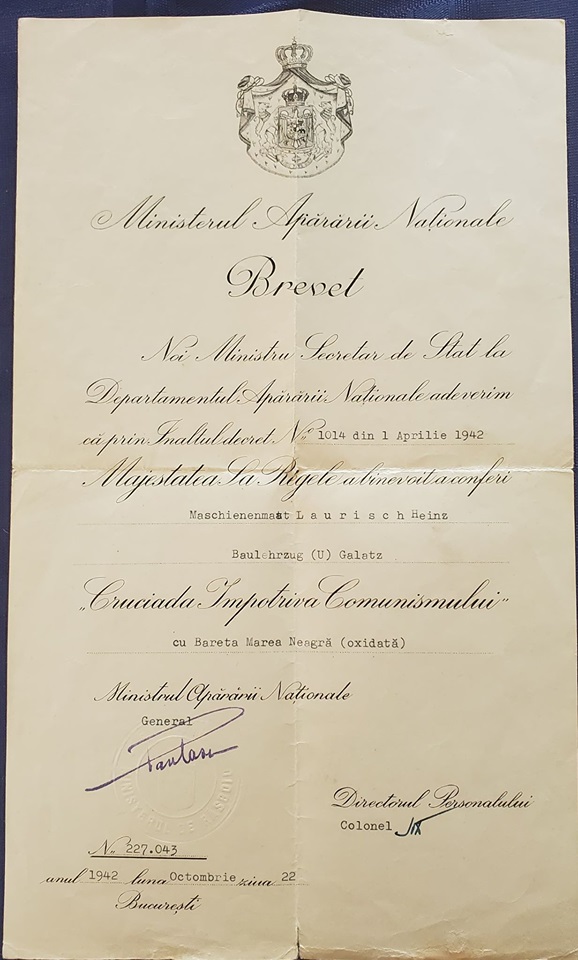 Ministerul Apărării Naționale
Brevet
Noi Ministru Secretar de Stat la
Departamentul Apărării Naționale adeverim
că prin Inaltul decret No. 1014 din 1 Aprilie 1942
Majestatea Sa Rigele a binevoit a conferi
Maschienenmaat Laurisch Heinz
Baulehrzug (U) Galatz
„Cruciada Impotriva Comunismului"
cu Bareta Marea Neagră (oxidată)
Ministrul Apărării Naționale
General
Directorul Personalului
Colonel
No. 227.043
anul 1942 luna Octombrie ziua 22
București